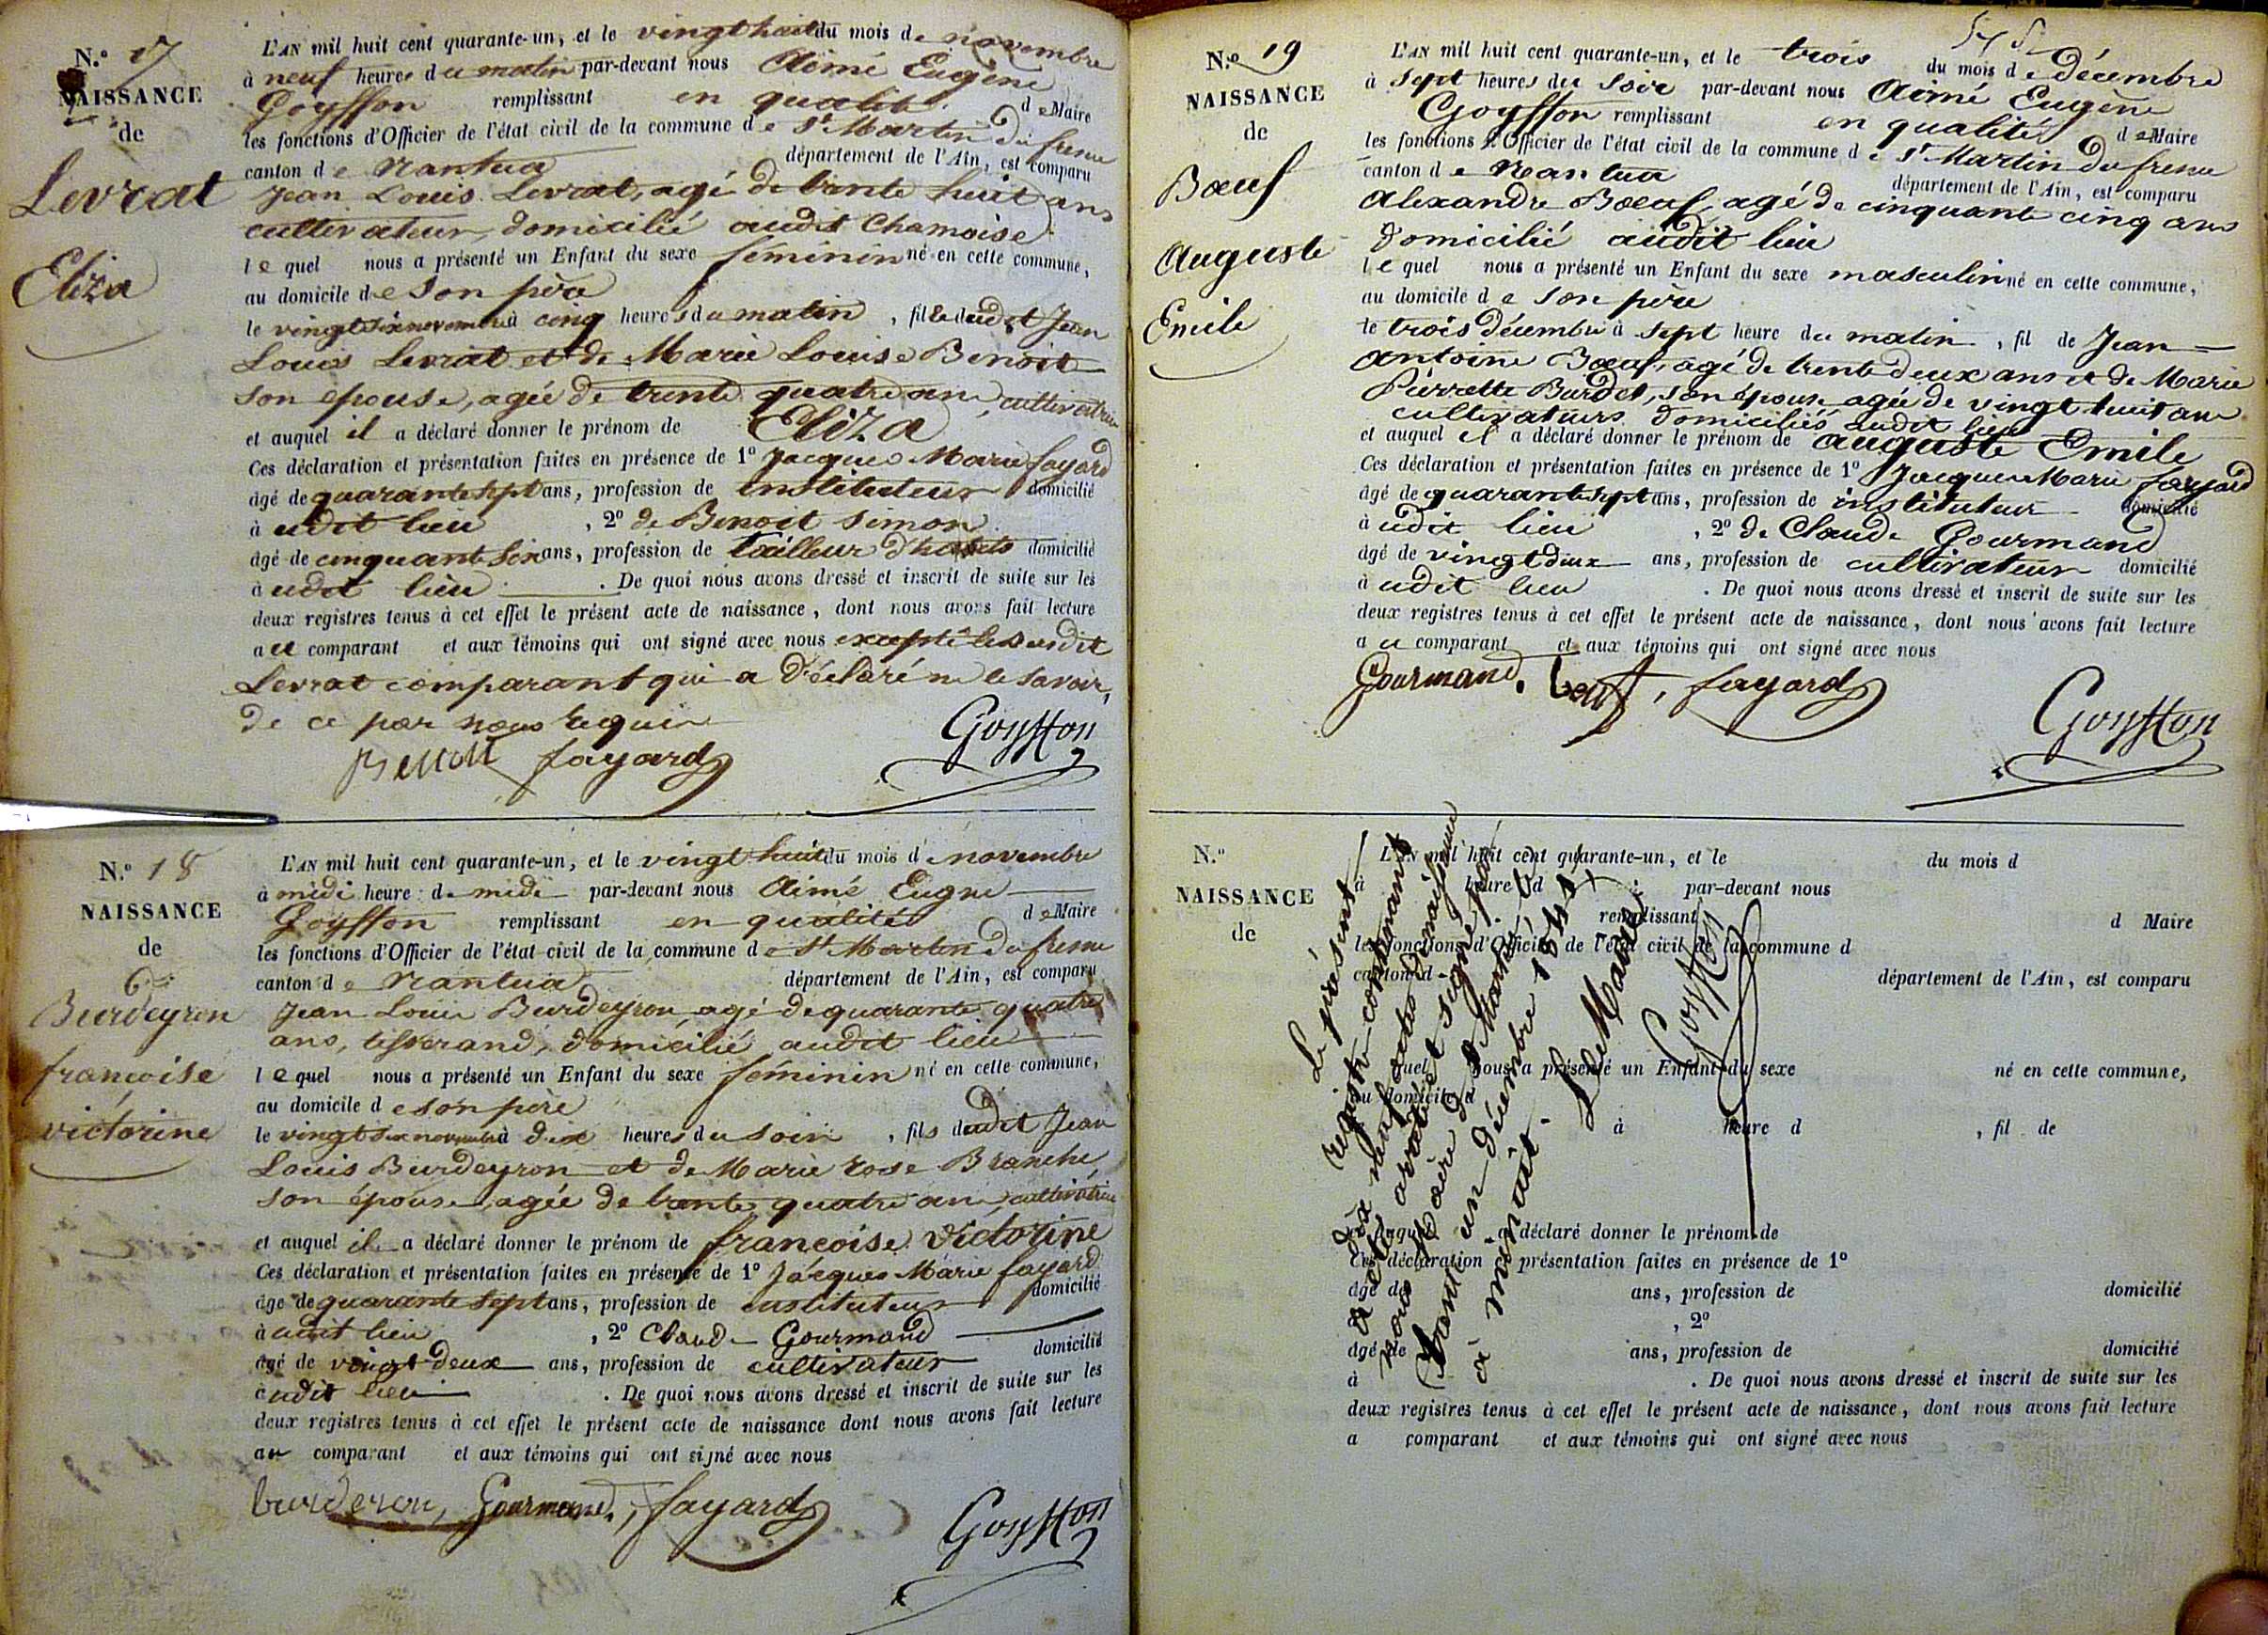 N.° 17
NAISSANCE
de
Levrat
Eliza
L'AN mil huit cent quarante-un, et le vingt huit du mois de novembre
à neuf heures du matin par-devant nous Aimé Eugène
Goyffon remplissant en qualité de Maire
les fonctions d'Officier de l'état civil de la commune de St Martin du fresne
canton de Nantua département de l'Ain, est comparu
Jean Louis Levrat, agé de trente huit ans
cultivateur, domicilié audit Chamoise
lequel nous a présenté un Enfant du sexe féminin né en cette commune,
au domicile de son père
le vingt six novembre à cinq heures du matin, fille dudit Jean
Louis Levrat et de Marie Louise Benoit
son epouse, agée de trente quatre ans, cultivatrice
et auquel il a déclaré donner le prénom de Eliza
Ces déclaration et présentation faites en présence de 1° Jacques Marie fayard
âgé de quarante sept ans, profession de instituteur domicilié
à udit lieu , 2° de Benoit Simon
âgé de cinquante six ans, profession de tailleur d'habits domicilié
à udit lieu . De quoi nous avons dressé et inscrit de suite sur les
deux registres tenus à cet effet le présent acte de naissance, dont nous avons fait lecture
au comparant et aux témoins qui ont signé avec nous excepté le susdit
Levrat comparant qui a déclaré ne le savoir,
de ce par nous requis
Benoit fayard Goyffon
N.° 18
NAISSANCE
de
Burdeyron
françoise
victorine
L'AN mil huit cent quarante-un, et le vingt huit du mois de novembre
à midi heure de midi par-devant nous Aimé Eugne
Goyffon remplissant en qualité de Maire
les fonctions d'Officier de l'état civil de la commune de St Martin du fresne
canton de Nantua département de l'Ain, est comparu
Jean Louis Burdeyron, agé de quarante quatre
ans, tisserand, domicilié audit lieu
lequel nous a présenté un Enfant du sexe féminin né en cette commune,
au domicile de son père
le vingt six novembre à dix heures du soir, fils dudit Jean
Louis Burdeyron et de Marie rose Branche,
son épouse, agée de trente quatre ans, cultivatrice
et auquel il a déclaré donner le prénom de françoise victorine
Ces déclaration et présentation faites en présence de 1° Jacques Marie fayard
âgé de quarante sept ans, profession de instituteur domicilié
à audit lieu , 2° Claude Gourmand
âgé de vingt deux ans, profession de cultivateur domicilié
à udit lieu . De quoi nous avons dressé et inscrit de suite sur les
deux registres tenus à cet effet le présent acte de naissance dont nous avons fait lecture
au comparant et aux témoins qui ont signé avec nous
burderon, Gourmand, fayard Goyffon
N.° 19
NAISSANCE
de
Bœuf
Auguste
Emile
L'AN mil huit cent quarante-un, et le trois du mois de décembre
à sept heures du soir par-devant nous Aimé Eugène
Goyffon remplissant en qualité de Maire
les fonctions d'Officier de l'état civil de la commune de St Martin du fresne
canton de Nantua département de l'Ain, est comparu
Alexandre Bœuf, agé de cinquante cinq ans
domicilié audit lieu
lequel nous a présenté un Enfant du sexe masculin né en cette commune,
au domicile de son père
le trois décembre à sept heure du matin, fil de Jean
Antoine Bœuf, agé de trente deux ans et de Marie
Pierrette Burdet, son épouse agée de vingt huit ans
cultivateurs domiciliés audit lieu
et auquel il a déclaré donner le prénom de auguste Emile
Ces déclaration et présentation faites en présence de 1° Jacques Marie fayard
âgé de quarante sept ans, profession de instituteur domicilié
à udit lieu , 2° de Claude Gourmand
âgé de vingt deux ans, profession de cultivateur domicilié
à udit lieu . De quoi nous avons dressé et inscrit de suite sur les
deux registres tenus à cet effet le présent acte de naissance, dont nous avons fait lecture
au comparant et aux témoins qui ont signé avec nous
Gourmand, bœuf, fayard Goyffon
N.°
NAISSANCE
de
L'AN mil huit cent quarante-un, et le du mois d
à heure d par-devant nous
remplissant d Maire
les fonctions d'Officier de l'état civil de la commune d
canton d département de l'Ain, est comparu
l quel nous a présenté un Enfant du sexe né en cette commune,
au domicile d
à heure d , fil de
et auquel a déclaré donner le prénom de
Ces déclaration et présentation faites en présence de 1°
âgé de ans, profession de domicilié
, 2°
âgé de ans, profession de domicilié
à . De quoi nous avons dressé et inscrit de suite sur les
deux registres tenus à cet effet le présent acte de naissance, dont nous avons fait lecture
a comparant et aux témoins qui ont signé avec nous
Le présent
registre contenant
dix neuf actes de naissance
a été arrêté et signé par
nous Maire de St Martin du f.
trente un décembre 1841
à minuit.
Le Maire
Goyffon